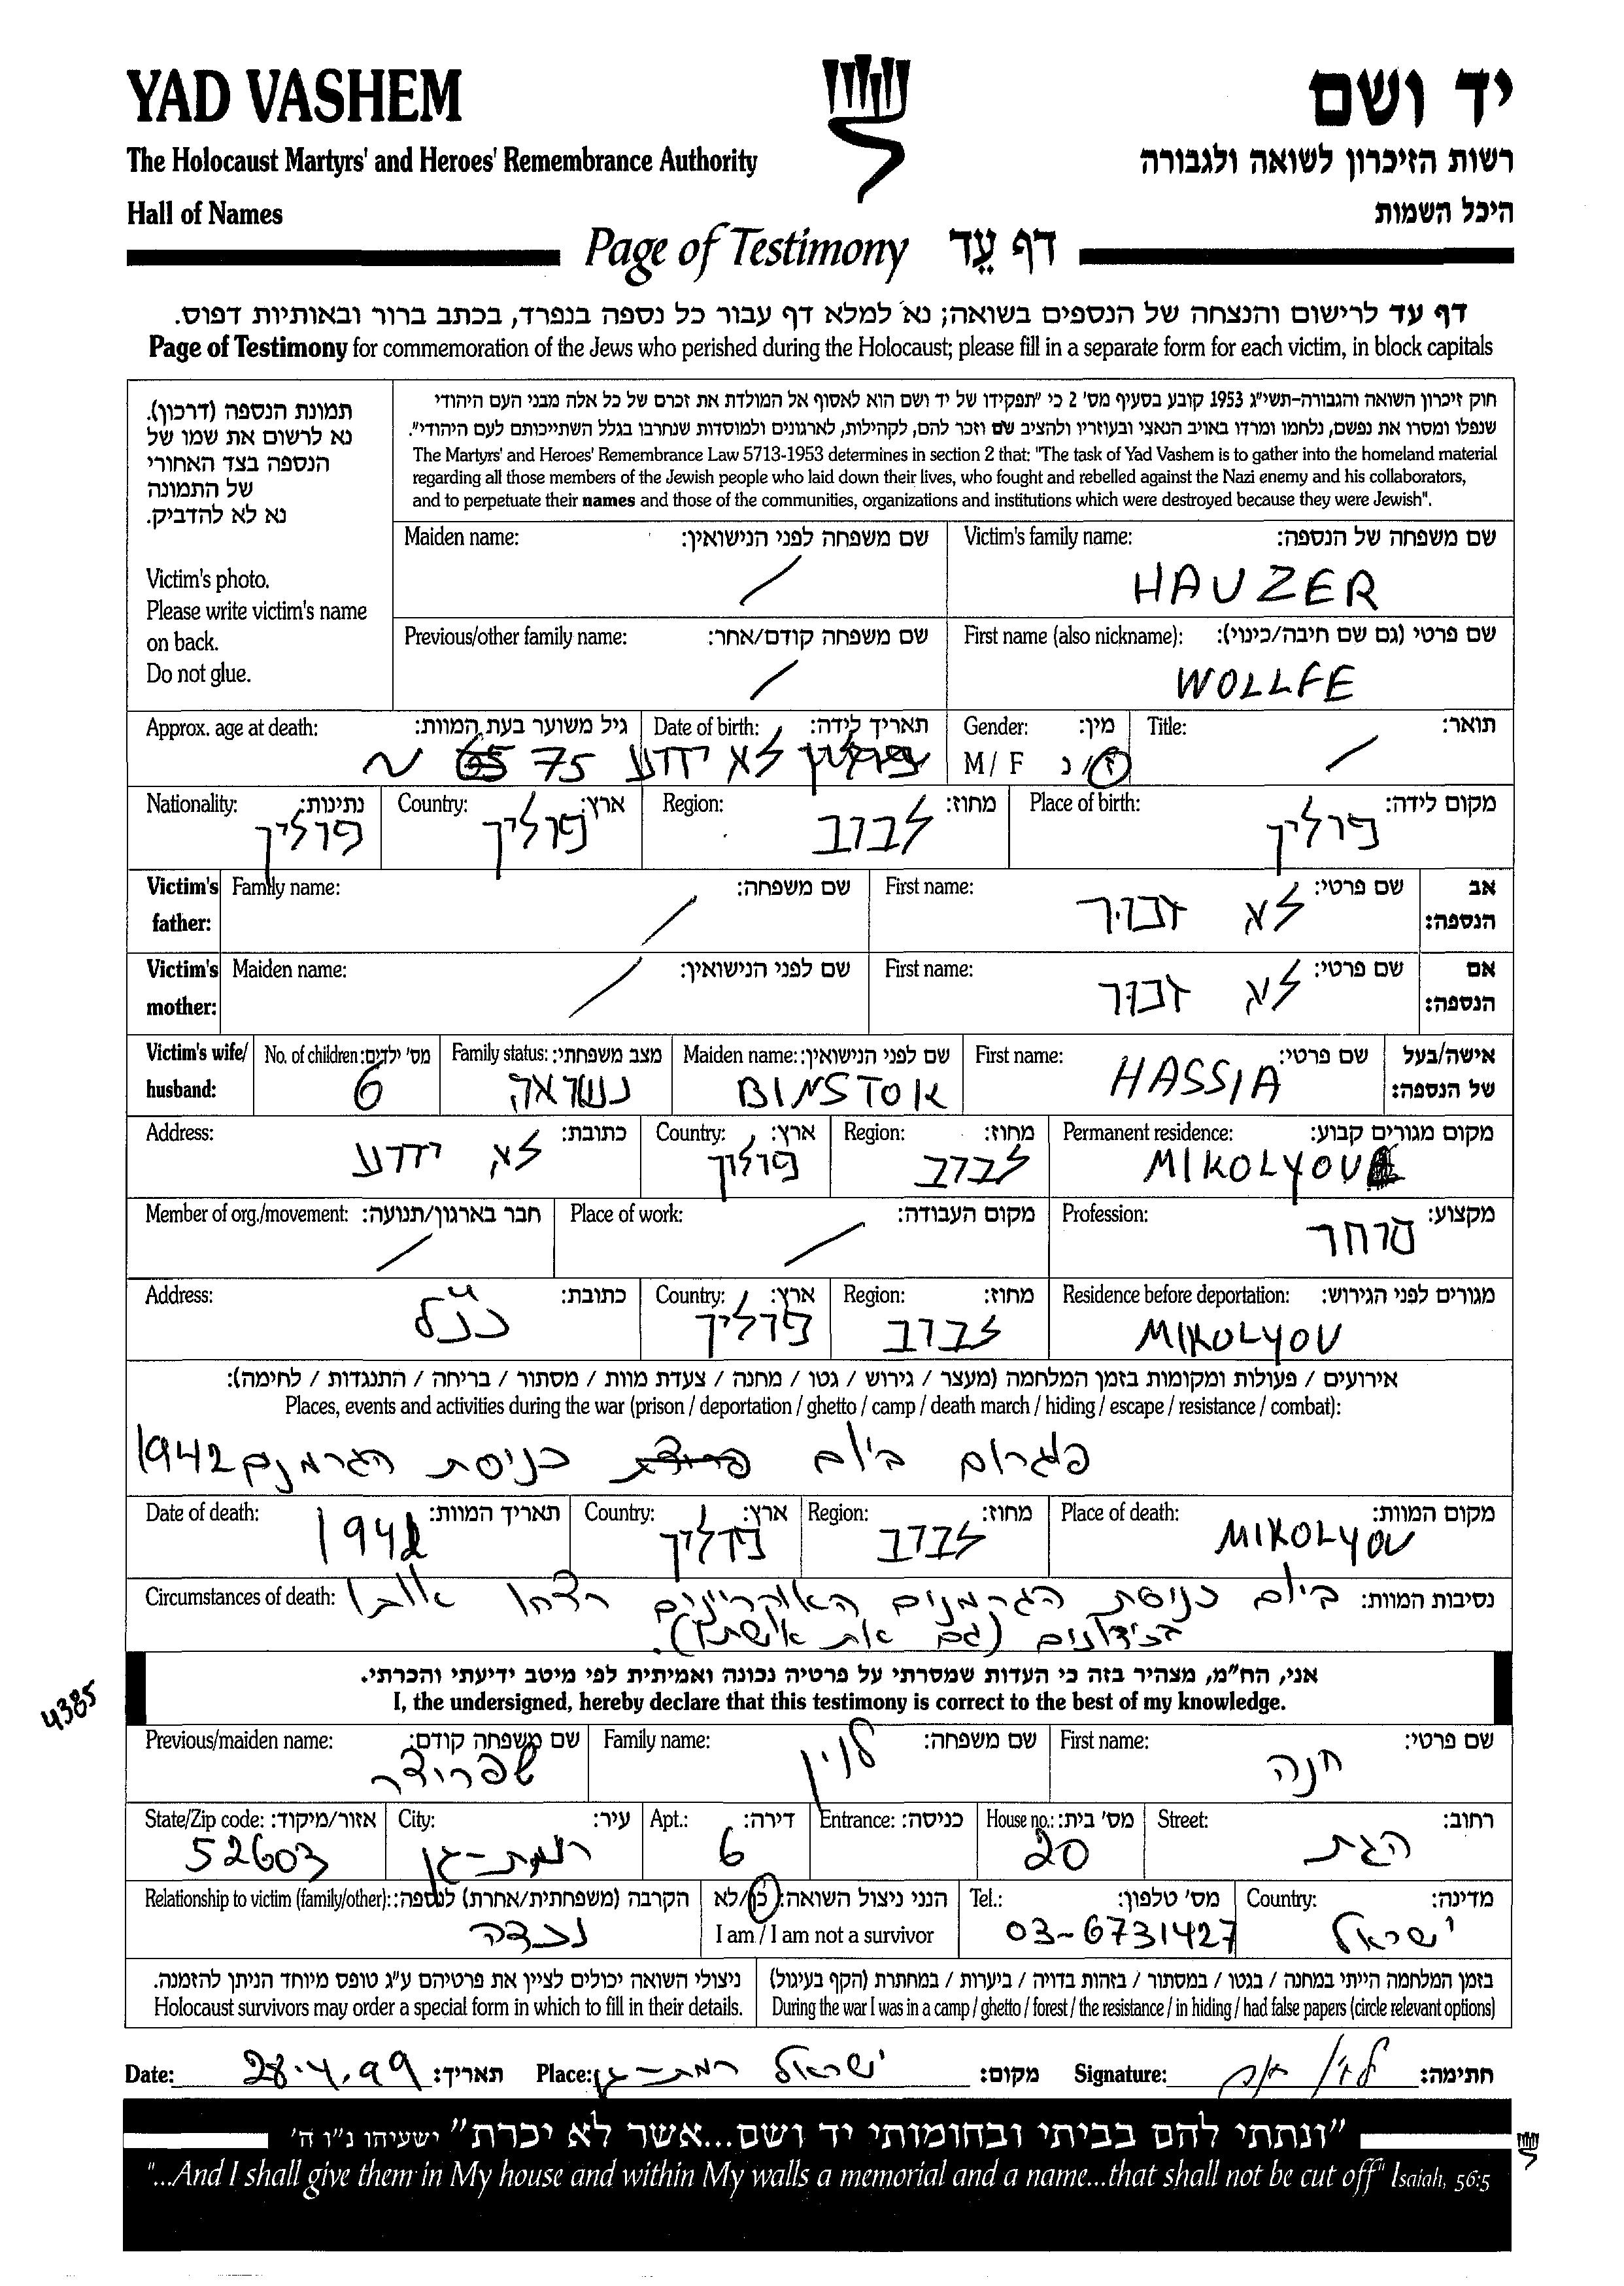 YAD VASHEM יד ושם
The Holocaust Martyrs' and Heroes' Remembrance Authority רשות הזיכרון לשואה ולגבורה
Hall of Names היכל השמות
Page of Testimony דף עֵד
דף עד לרישום והנצחה של הנספים בשואה; נא למלא דף עבור כל נספה בנפרד, בכתב ברור ובאותיות דפוס.
Page of Testimony for commemoration of the Jews who perished during the Holocaust; please fill in a separate form for each victim, in block capitals
תמונת הנספה (דרכון).
נא לרשום את שמו של
הנספה בצד האחורי
של התמונה
נא לא להדביק.
Victim's photo.
Please write victim's name
on back.
Do not glue.
חוק זיכרון השואה והגבורה-תשי"ג 1953 קובע בסעיף מס' 2 כי "תפקידו של יד ושם הוא לאסוף אל המולדת את זכרם של כל אלה מבני העם היהודי
שנפלו ומסרו את נפשם, נלחמו ומרדו באויב הנאצי ובעוזריו ולהציב שם וזכר להם, לקהילות, לארגונים ולמוסדות שנחרבו בגלל השתייכותם לעם היהודי".
The Martyrs' and Heroes' Remembrance Law 5713-1953 determines in section 2 that: "The task of Yad Vashem is to gather into the homeland material
regarding all those members of the Jewish people who laid down their lives, who fought and rebelled against the Nazi enemy and his collaborators,
and to perpetuate their names and those of the communities, organizations and institutions which were destroyed because they were Jewish".
Maiden name: שם משפחה לפני הנישואין: Victim's family name: שם משפחה של הנספה:
/ HAUZER
Previous/other family name: שם משפחה קודם/אחר: First name (also nickname): שם פרטי (גם שם חיבה/כינוי):
/ WOLLFE
Approx. age at death: גיל משוער בעת המוות: Date of birth: תאריך לידה: Gender: מין: Title: תואר:
~ 75 לא יודע M / F ז/נ /
Nationality: נתינות: Country: ארץ: Region: מחוז: Place of birth: מקום לידה:
פולין פולין לבוב פולין
Victim's father: Family name: שם משפחה: First name: שם פרטי: אב הנספה:
/ לא זכור
Victim's mother: Maiden name: שם לפני הנישואין: First name: שם פרטי: אם הנספה:
/ לא זכור
Victim's wife/ husband: No. of children: מס' ילדים: Family status: מצב משפחתי: Maiden name: שם לפני הנישואין: First name: שם פרטי: אישה/בעל של הנספה:
6 נשוא BINSTOK HASSIA
Address: כתובת: Country: ארץ: Region: מחוז: Permanent residence: מקום מגורים קבוע:
לא יודע פולין לבוב MIKOLYOV
Member of org./movement: חבר בארגון/תנועה: Place of work: מקום העבודה: Profession: מקצוע:
/ / סוחר
Address: כתובת: Country: ארץ: Region: מחוז: Residence before deportation: מגורים לפני הגירוש:
כנ"ל פולין לבוב MIKOLYOV
אירועים / פעולות ומקומות בזמן המלחמה (מעצר / גירוש / גטו / מחנה / צעדת מוות / מסתור / בריחה / התנגדות / לחימה):
Places, events and activities during the war (prison / deportation / ghetto / camp / death march / hiding / escape / resistance / combat):
פוגרום ביום כניסת הגרמנים 1942
Date of death: תאריך המוות: Country: ארץ: Region: מחוז: Place of death: מקום המוות:
פולין לבוב MIKOLYOV
Circumstances of death: נסיבות המוות: ביום כניסת הגרמנים האוקריינים רצחו אותו
(גם את אשתו).
אני, הח"מ, מצהיר בזה כי העדות שמסרתי על פרטיה נכונה ואמיתית לפי מיטב ידיעתי והכרתי.
I, the undersigned, hereby declare that this testimony is correct to the best of my knowledge.
4385
Previous/maiden name: שם משפחה קודם: Family name: שם משפחה: First name: שם פרטי:
שפרוצר לוין חנה
State/Zip code: אזור/מיקוד: City: עיר: Apt.: דירה: Entrance: כניסה: House no.: מס' בית: Street: רחוב:
52603 רמת-גן 6 20 הגת
Relationship to victim (family/other): הקרבה (משפחתית/אחרת) לנספה: הנני ניצול השואה: כן/לא Tel.: מס' טלפון: Country: מדינה:
נכדה I am / I am not a survivor 03-6731427 ישראל
ניצולי השואה יכולים לציין את פרטיהם ע"ג טופס מיוחד הניתן להזמנה. בזמן המלחמה הייתי במחנה / בגטו / במסתור / בזהות בדויה / ביערות / במחתרת (הקף בעיגול)
Holocaust survivors may order a special form in which to fill in their details. During the war I was in a camp / ghetto / forest / the resistance / in hiding / had false papers (circle relevant options)
Date: 28.4.99 תאריך: Place: ישראל רמת-גן מקום: Signature: חתימה:
"ונתתי להם בביתי ובחומותי יד ושם...אשר לא יכרת" ישעיהו נ"ו ה'
"...And I shall give them in My house and within My walls a memorial and a name...that shall not be cut off" Isaiah, 56:5